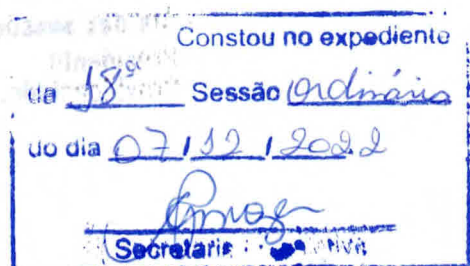 Constou no expediente
da 18ª Sessão Ordinária
do dia 07/12/2022
Secretaria